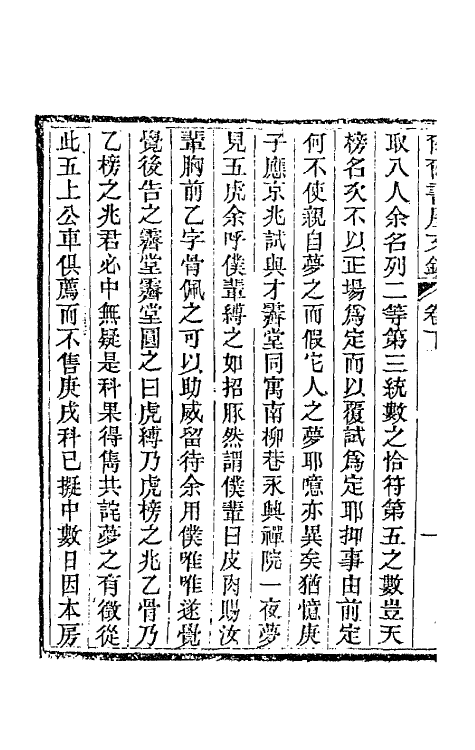 取八人余名列二等第三統數之恰符第五之數豈天
榜名次不以正場爲定而以覆試爲定耶抑事由前定
何不使親自夢之而假它人之夢耶噫亦異矣猶憶庚
子應京兆試與才霽堂同寓南柳巷永興禪院一夜夢
見五虎余呼僕輩縛之如招豚然謂僕輩曰皮肉賜汝
輩胸前乙字骨佩之可以助威留待余用僕唯唯遂覺
覺後告之霽堂霽堂圓之曰虎縛乃虎榜之兆乙骨乃
乙榜之兆君必中無疑是科果得雋共詫夢之有徵從
此五上公車俱薦而不售庚戌科已擬中數日因本房